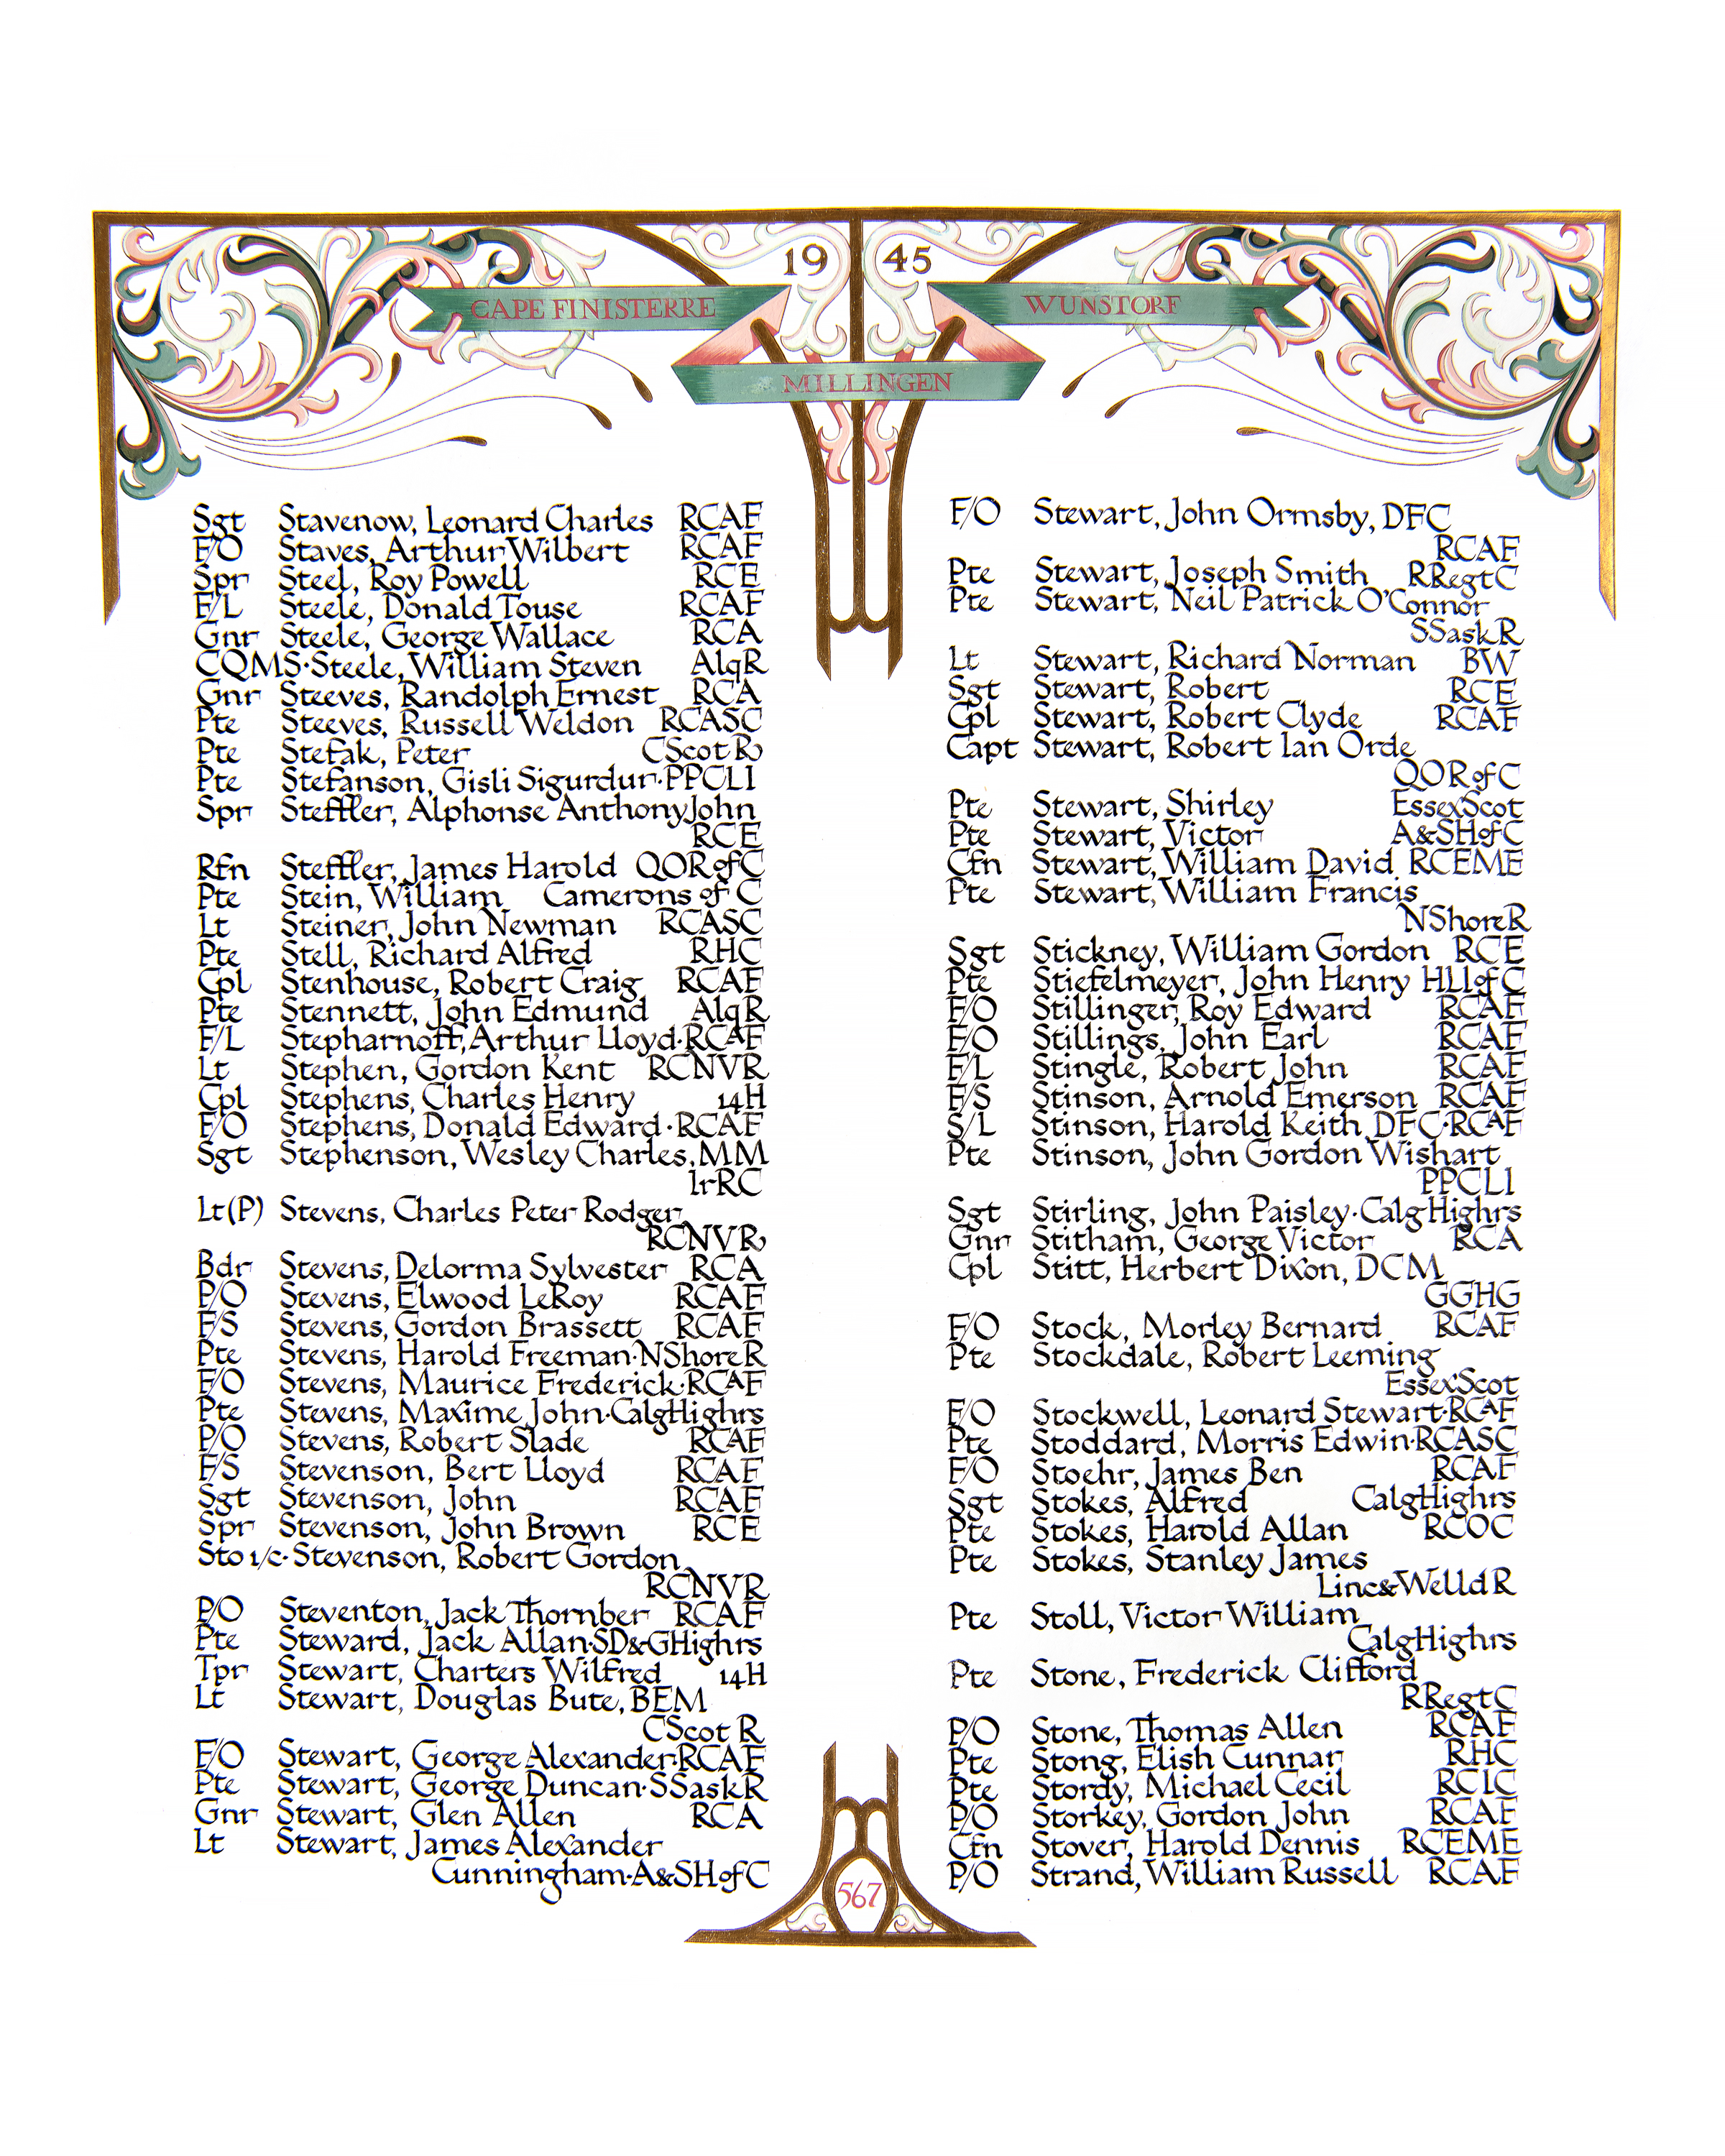 19 45
CAPE FINISTERRE
WUNSTORF
MILLINGEN
Sgt Stavenow, Leonard Charles RCAF
F/O Staves, Arthur Wilbert RCAF
Spr Steel, Roy Powell RCE
F/L Steele, Donald Touse RCAF
Gnr Steele, George Wallace RCA
CQMS·Steele, William Steven AlqR
Gnr Steeves, Randolph Ernest RCA
Pte Steeves, Russell Weldon RCASC
Pte Stefak, Peter CScot R
Pte Stefanson, Gisli Sigurdur·PPCLI
Spr Steffler, Alphonse Anthony John
RCE
Rfn Steffler, James Harold QOR of C
Pte Stein, William Camerons of C
Lt Steiner, John Newman RCASC
Pte Stell, Richard Alfred RHC
Cpl Stenhouse, Robert Craig RCAF
Pte Stennett, John Edmund AlqR
F/L Stepharnoff, Arthur Lloyd·RCAF
Lt Stephen, Gordon Kent RCNVR
Cpl Stephens, Charles Henry 14H
F/O Stephens, Donald Edward·RCAF
Sgt Stephenson, Wesley Charles, MM
IrRC
Lt(P) Stevens, Charles Peter Rodger
RCNVR
Bdr Stevens, Delorma Sylvester RCA
P/O Stevens, Elwood LeRoy RCAF
F/S Stevens, Gordon Brassett RCAF
Pte Stevens, Harold Freeman·NShoreR
F/O Stevens, Maurice Frederick·RCAF
Pte Stevens, Maxime John·CalgHighrs
P/O Stevens, Robert Slade RCAF
F/S Stevenson, Bert Lloyd RCAF
Sgt Stevenson, John RCAF
Spr Stevenson, John Brown RCE
Sto 1/c·Stevenson, Robert Gordon
RCNVR
P/O Steventon, Jack Thornber RCAF
Pte Steward, Jack Allan·SD&GHighrs
Tpr Stewart, Charters Wilfred 14H
Lt Stewart, Douglas Bute, BEM
CScot R
F/O Stewart, George Alexander·RCAF
Pte Stewart, George Duncan·SSaskR
Gnr Stewart, Glen Allen RCA
Lt Stewart, James Alexander
Cunningham·A&SHofC
F/O Stewart, John Ormsby, DFC
RCAF
Pte Stewart, Joseph Smith RRegtC
Pte Stewart, Neil Patrick O'Connor
SSaskR
Lt Stewart, Richard Norman BW
Sgt Stewart, Robert RCE
Cpl Stewart, Robert Clyde RCAF
Capt Stewart, Robert Ian Orde
QOR of C
Pte Stewart, Shirley EssexScot
Pte Stewart, Victor A&SHofC
Cfn Stewart, William David RCEME
Pte Stewart, William Francis
NShoreR
Sgt Stickney, William Gordon RCE
Pte Stiefelmeyer, John Henry HLIofC
F/O Stillinger, Roy Edward RCAF
F/O Stillings, John Earl RCAF
F/L Stingle, Robert John RCAF
F/S Stinson, Arnold Emerson RCAF
S/L Stinson, Harold Keith, DFC·RCAF
Pte Stinson, John Gordon Wishart
PPCLI
Sgt Stirling, John Paisley·CalgHighrs
Gnr Stitham, George Victor RCA
Cpl Stitt, Herbert Dixon, DCM
GGHG
F/O Stock, Morley Bernard RCAF
Pte Stockdale, Robert Leeming
EssexScot
F/O Stockwell, Leonard Stewart·RCAF
Pte Stoddard, Morris Edwin·RCASC
F/O Stoehr, James Ben RCAF
Sgt Stokes, Alfred CalgHighrs
Pte Stokes, Harold Allan RCOC
Pte Stokes, Stanley James
Linc&WelldR
Pte Stoll, Victor William
CalgHighrs
Pte Stone, Frederick Clifford
RRegtC
P/O Stone, Thomas Allen RCAF
Pte Stong, Elish Cunnar RHC
Pte Stordy, Michael Cecil RCIC
P/O Storkey, Gordon John RCAF
Cfn Stover, Harold Dennis RCEME
P/O Strand, William Russell RCAF
567